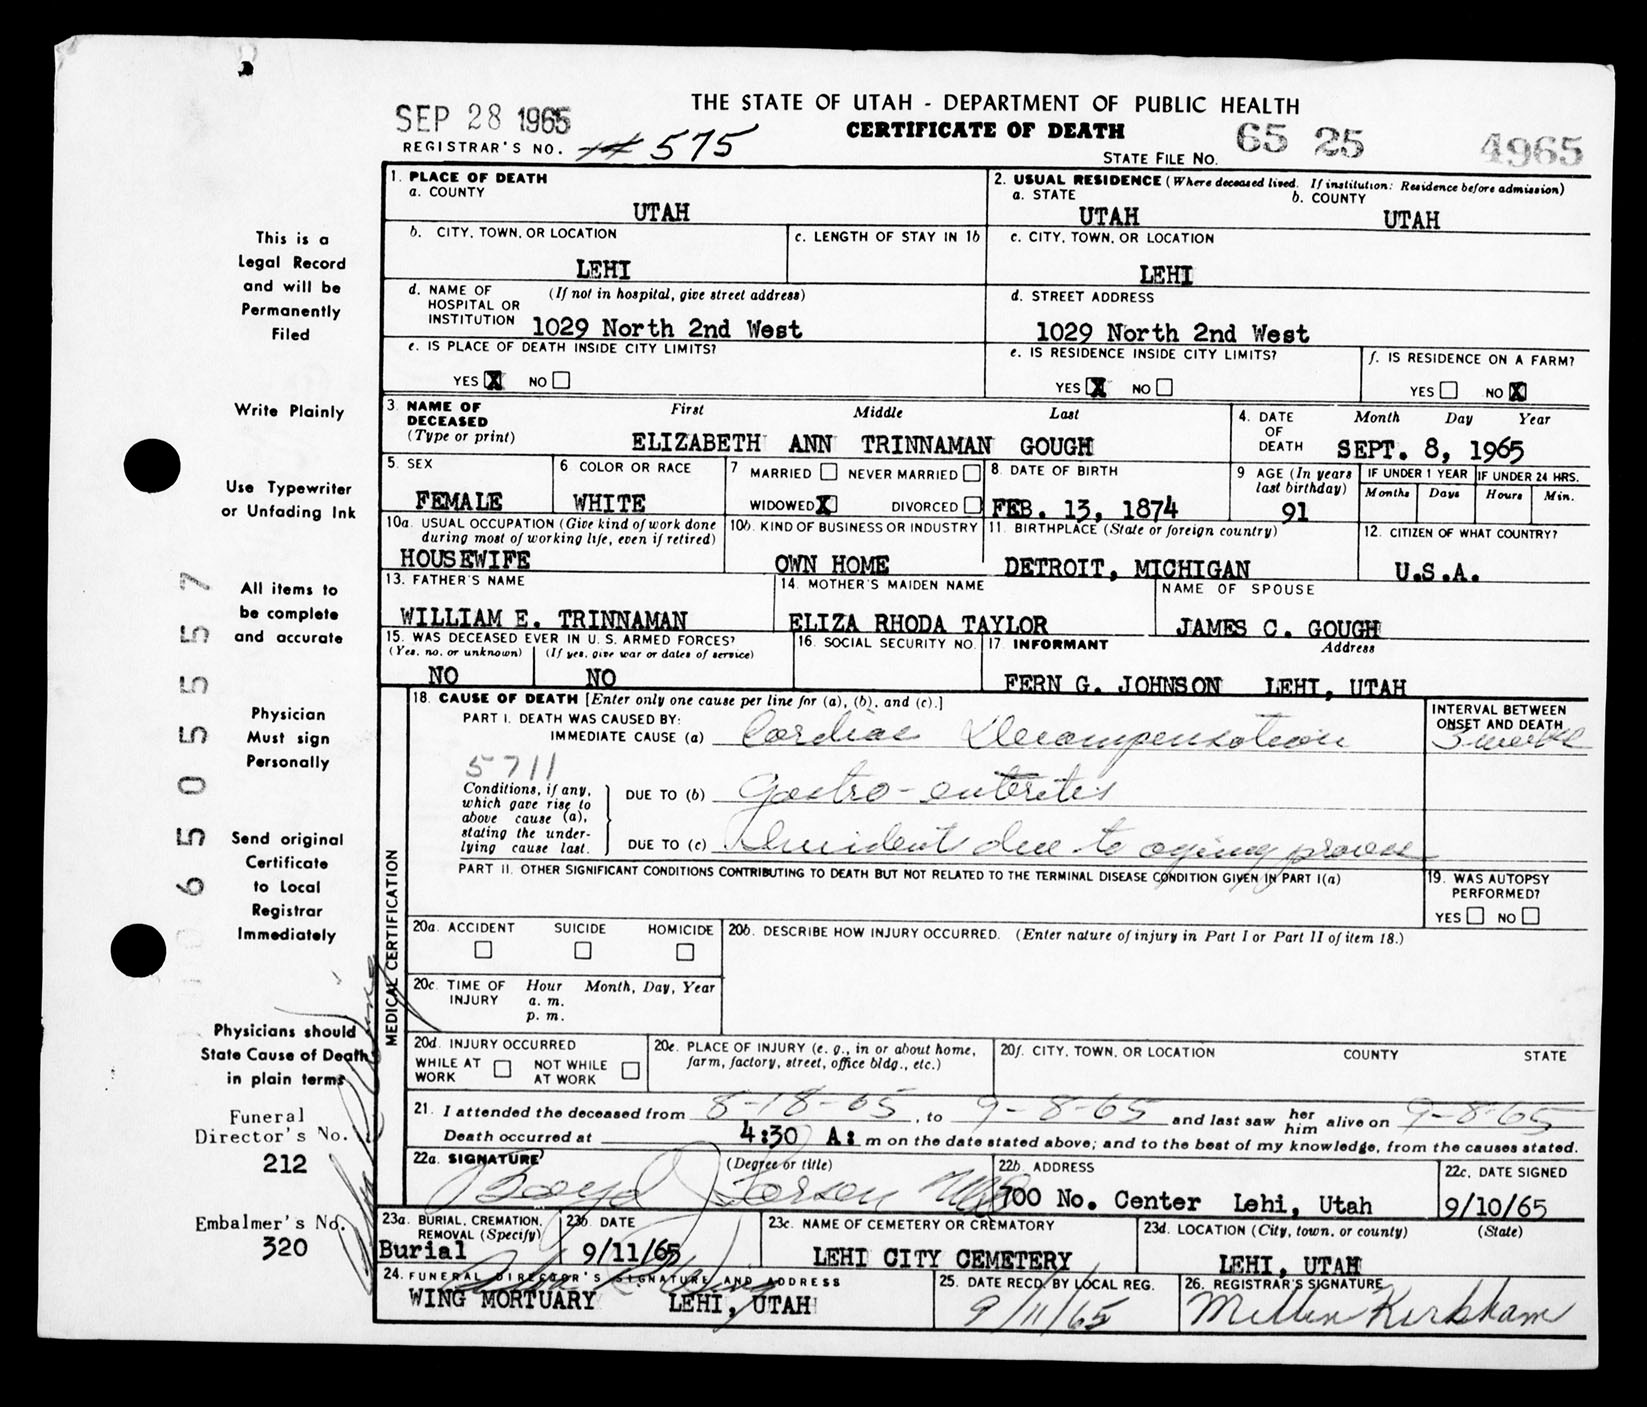 THE STATE OF UTAH - DEPARTMENT OF PUBLIC HEALTH
SEP 28 1965
CERTIFICATE OF DEATH
65 25 4965
REGISTRAR'S NO. # 575
STATE FILE NO.
1. PLACE OF DEATH
a. COUNTY
UTAH
2. USUAL RESIDENCE (Where deceased lived. If institution: Residence before admission)
a. STATE b. COUNTY
UTAH UTAH
b. CITY, TOWN, OR LOCATION
LEHI
c. LENGTH OF STAY IN 1b
c. CITY, TOWN, OR LOCATION
LEHI
d. NAME OF HOSPITAL OR INSTITUTION (If not in hospital, give street address)
1029 North 2nd West
d. STREET ADDRESS
1029 North 2nd West
e. IS PLACE OF DEATH INSIDE CITY LIMITS?
YES X NO
e. IS RESIDENCE INSIDE CITY LIMITS?
YES X NO
f. IS RESIDENCE ON A FARM?
YES NO X
3. NAME OF DECEASED (Type or print)
First Middle Last
ELIZABETH ANN TRINNAMAN GOUGH
4. DATE OF DEATH
Month Day Year
SEPT. 8, 1965
5. SEX
FEMALE
6 COLOR OR RACE
WHITE
7 MARRIED NEVER MARRIED
WIDOWED X DIVORCED
8. DATE OF BIRTH
FEB. 13, 1874
9 AGE (In years last birthday)
91
IF UNDER 1 YEAR
Months Days
IF UNDER 24 HRS.
Hours Min.
10a. USUAL OCCUPATION (Give kind of work done during most of working life, even if retired)
HOUSEWIFE
10b. KIND OF BUSINESS OR INDUSTRY
OWN HOME
11. BIRTHPLACE (State or foreign country)
DETROIT, MICHIGAN
12. CITIZEN OF WHAT COUNTRY?
U.S.A.
13. FATHER'S NAME
WILLIAM E. TRINNAMAN
14. MOTHER'S MAIDEN NAME
ELIZA RHODA TAYLOR
NAME OF SPOUSE
JAMES C. GOUGH
15. WAS DECEASED EVER IN U. S. ARMED FORCES?
(Yes, no, or unknown) (If yes, give war or dates of service)
NO NO
16. SOCIAL SECURITY NO.
17. INFORMANT Address
FERN G. JOHNSON LEHI, UTAH
MEDICAL CERTIFICATION
18. CAUSE OF DEATH [Enter only one cause per line for (a), (b), and (c).]
PART I. DEATH WAS CAUSED BY:
IMMEDIATE CAUSE (a) Cardiac Decompensation
INTERVAL BETWEEN ONSET AND DEATH
3 weeks
5711
Conditions, if any, which gave rise to above cause (a), stating the underlying cause last.
DUE TO (b) Gastro-enteritis
DUE TO (c) due to aging process
PART II. OTHER SIGNIFICANT CONDITIONS CONTRIBUTING TO DEATH BUT NOT RELATED TO THE TERMINAL DISEASE CONDITION GIVEN IN PART I(a)
19. WAS AUTOPSY PERFORMED?
YES NO
20a. ACCIDENT SUICIDE HOMICIDE
20b. DESCRIBE HOW INJURY OCCURRED. (Enter nature of injury in Part I or Part II of item 18.)
20c. TIME OF INJURY
Hour Month, Day, Year
a. m.
p. m.
20d. INJURY OCCURRED
WHILE AT WORK NOT WHILE AT WORK
20e. PLACE OF INJURY (e. g., in or about home, farm, factory, street, office bldg., etc.)
20f. CITY, TOWN, OR LOCATION COUNTY STATE
21. I attended the deceased from 8-18-65, to 9-8-65 and last saw her him alive on 9-8-65
Death occurred at 4:30 A: m on the date stated above; and to the best of my knowledge, from the causes stated.
22a. SIGNATURE (Degree or title)
Boyd Larsen MD
22b. ADDRESS
700 No. Center Lehi, Utah
22c. DATE SIGNED
9/10/65
23a. BURIAL, CREMATION, REMOVAL (Specify)
Burial
23b. DATE
9/11/65
23c. NAME OF CEMETERY OR CREMATORY
LEHI CITY CEMETERY
23d. LOCATION (City, town, or county) (State)
LEHI, UTAH
24. FUNERAL DIRECTOR'S SIGNATURE AND ADDRESS
WING MORTUARY LEHI, UTAH
25. DATE RECD. BY LOCAL REG.
9/11/65
26. REGISTRAR'S SIGNATURE
Kirkham
This is a
Legal Record
and will be
Permanently
Filed
Write Plainly
Use Typewriter
or Unfading Ink
All items to
be complete
and accurate
Physician
Must sign
Personally
Send original
Certificate
to Local
Registrar
Immediately
Physicians should
State Cause of Death
in plain terms
Funeral
Director's No.
212
Embalmer's No.
320
650557